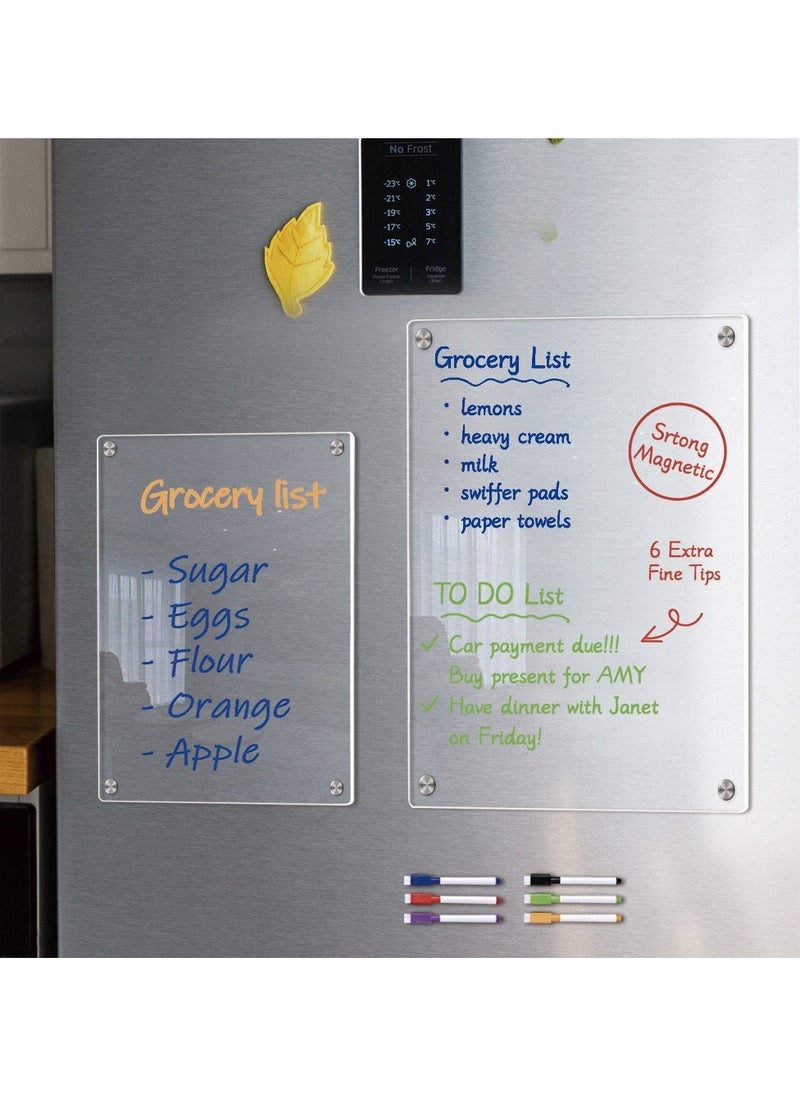 No Frost
-23℃ 1℃
-21℃ 2℃
-19℃ 3℃
-17℃ 5℃
-15℃ 7℃
Freezer Fridge
Power Freeze
(3 sec)
Vacation
(3 sec)
Grocery list
- Sugar
- Eggs
- Flour
- Orange
- Apple
Grocery List
• lemons
• heavy cream
• milk
• swiffer pads
• paper towels
Srtong
Magnetic
6 Extra
Fine Tips
TO DO List
✓ Car payment due!!!
Buy present for AMY
✓ Have dinner with Janet
on Friday!